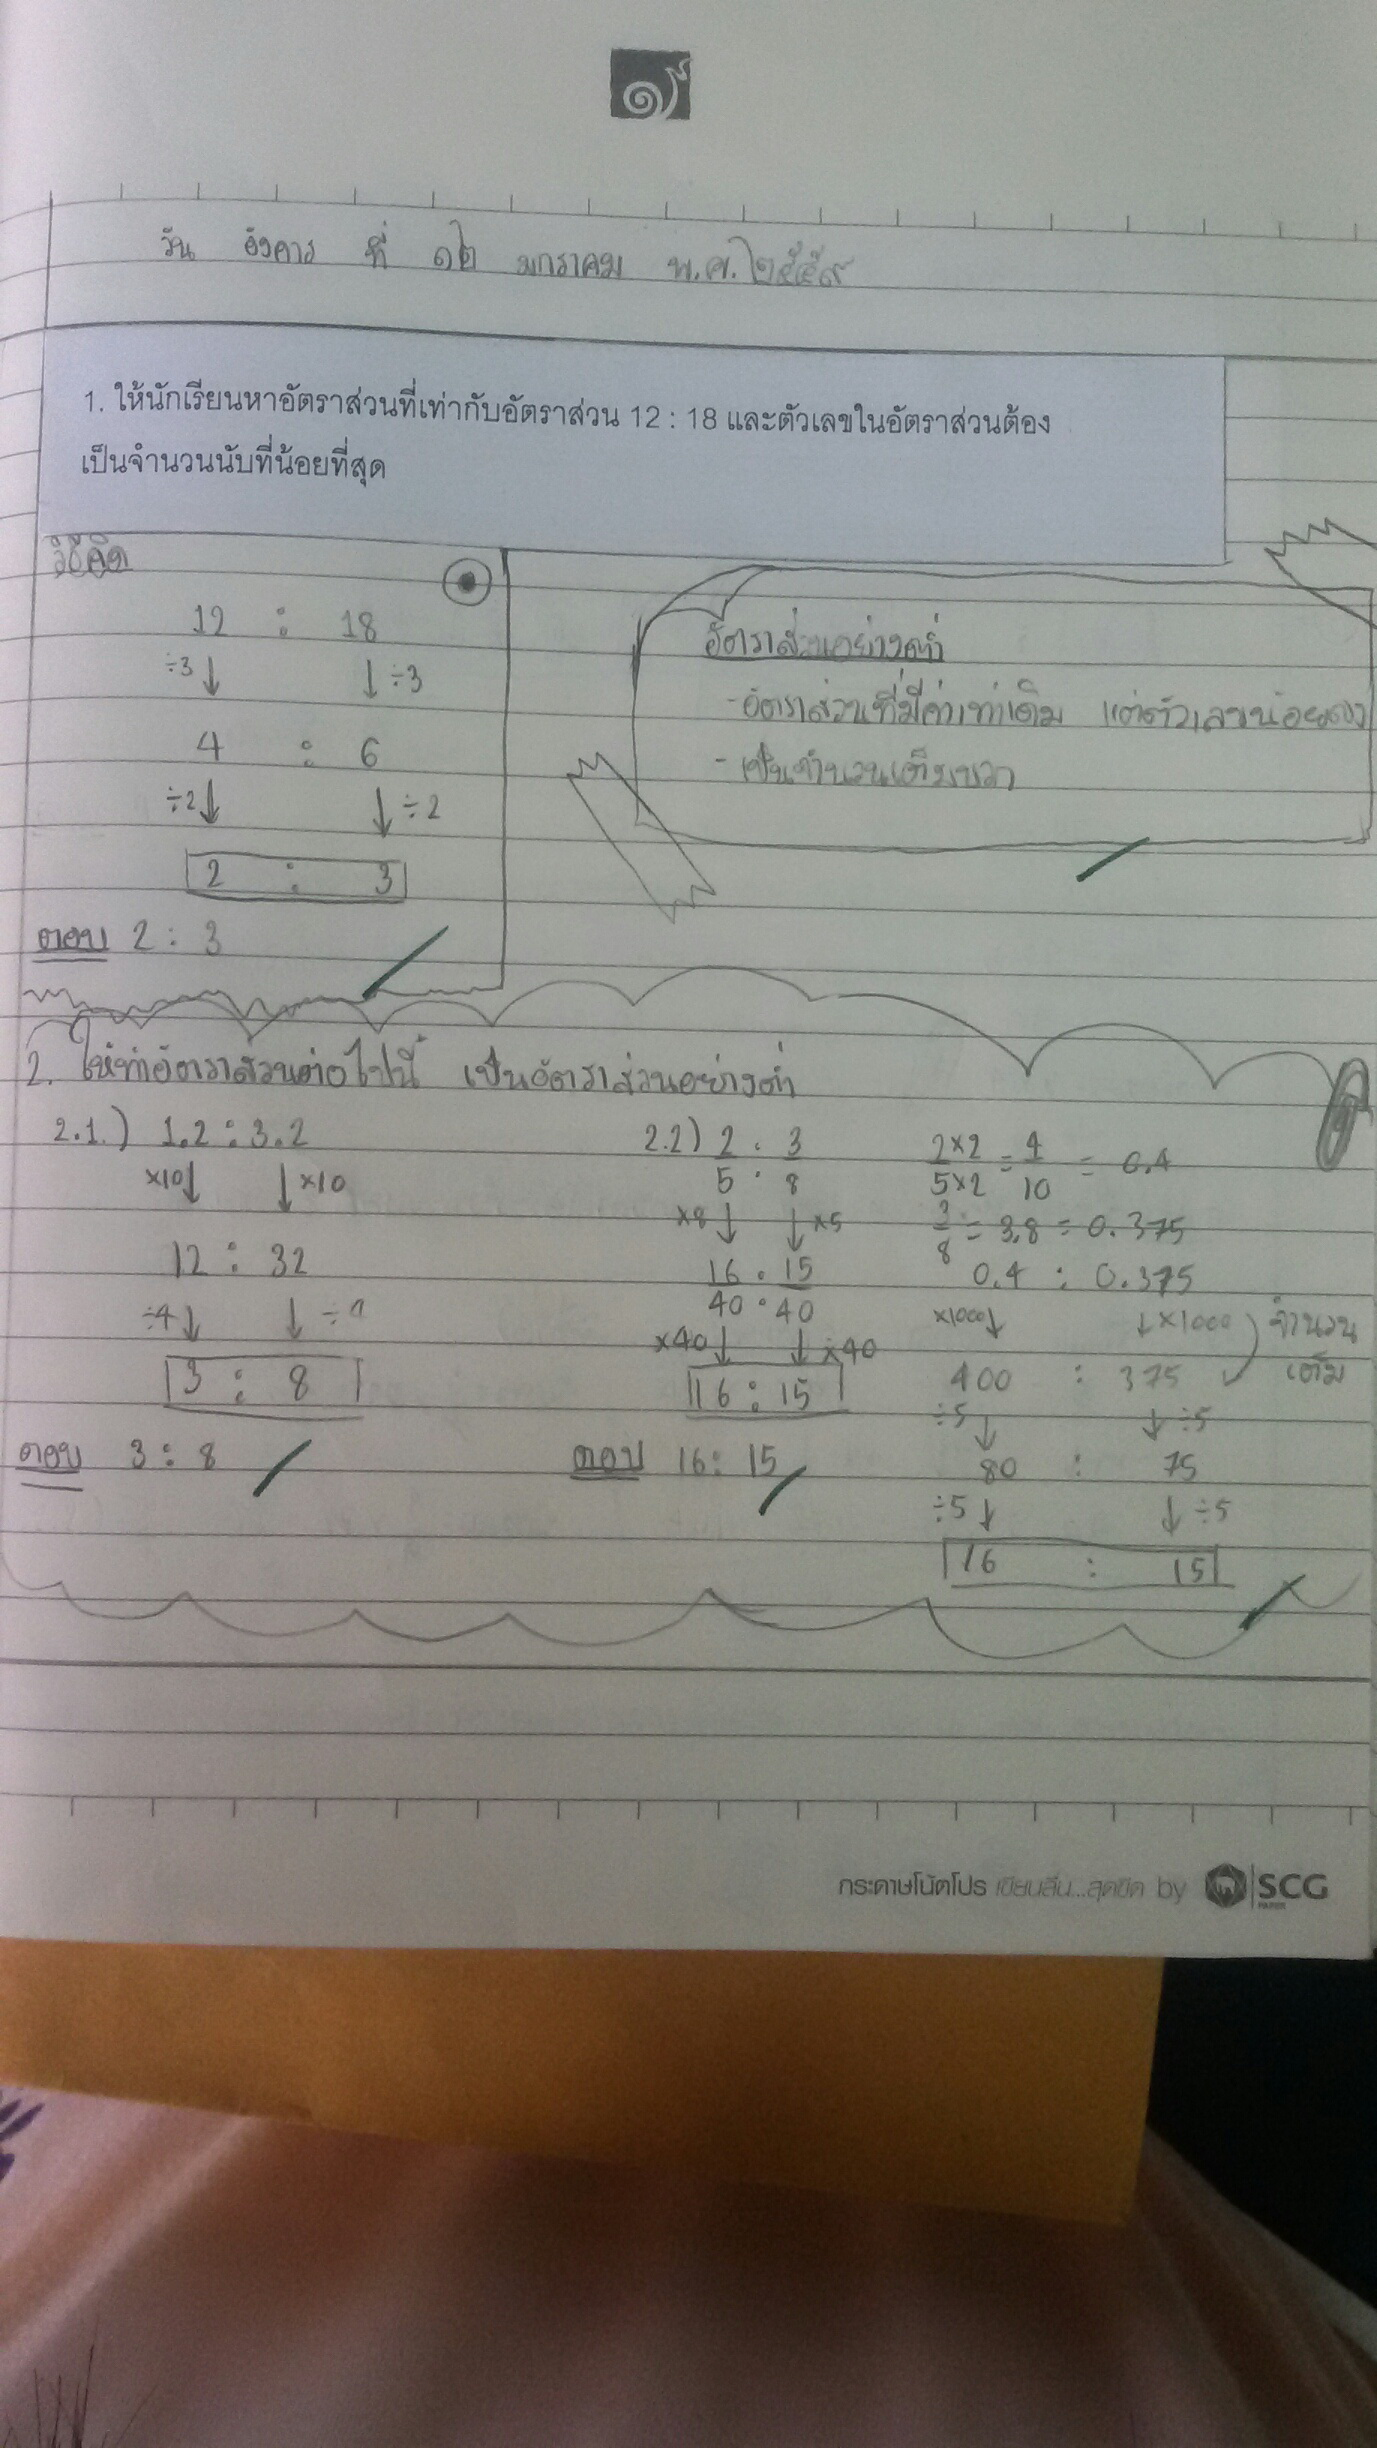 ๑
วัน อังคาร ที่ ๑๒ มกราคม พ.ศ. ๒๕๕๙
1. ให้นักเรียนหาอัตราส่วนที่เท่ากับอัตราส่วน 12 : 18 และตัวเลขในอัตราส่วนต้อง
เป็นจำนวนนับที่น้อยที่สุด
วิธีคิด
12 : 18
÷3↓ ↓÷3
4 : 6
÷2↓ ↓÷2
2 : 3
ตอบ 2 : 3
อัตราส่วนอย่างต่ำ
-อัตราส่วนที่มีค่าเท่าเดิม แต่ตัวเลขน้อยลง
-เป็นจำนวนเต็มบวก
2. ให้ทำอัตราส่วนต่อไปนี้ เป็นอัตราส่วนอย่างต่ำ
2.1.) 1.2 : 3.2
×10↓ ↓×10
12 : 32
÷4↓ ↓÷4
3 : 8
ตอบ 3 : 8
2.2) 2/5 : 3/8
×8↓ ↓×5
16/40 : 15/40
×40↓ ↓×40
16 : 15
ตอบ 16 : 15
2×2/5×2 = 4/10 = 0.4
3/8 = 3.8 = 0.375
0.4 : 0.375
×1000↓ ↓×1000 จำนวน
เต็ม
400 : 375
÷5↓ ↓÷5
80 : 75
÷5↓ ↓÷5
16 : 15
กระดาษโน้ตโปร เขียนลื่น...สุดขีด by SCG
PAPER